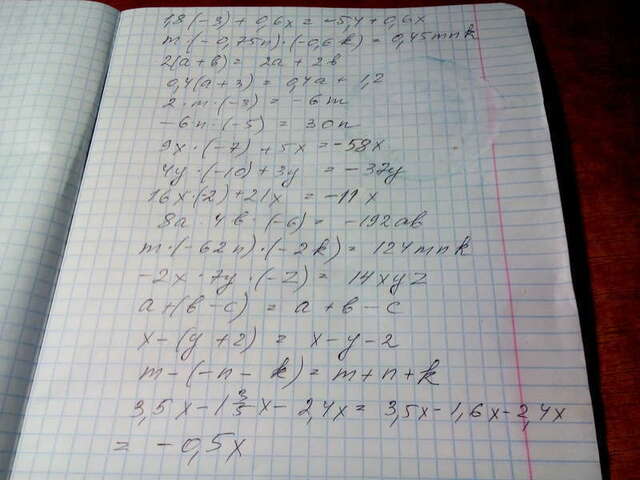 1,8(-3)+0,6x = -5,4+0,6x
m·(-0,75n)·(-0,6k) = 0,45mnk
2(a+b) = 2a+2b
0,4(a+3) = 0,4a+1,2
2·m·(-3) = -6m
-6n·(-5) = 30n
9x·(-7)+5x = -58x
4y·(-10)+3y = -37y
16x·(2)+21x = -11x
8a·4b·(-6) = -192ab
m·(-62n)·(-2k) = 124mnk
-2x·7y·(-z) = 14xyz
a+(b-c) = a+b-c
x-(y+2) = x-y-2
m-(-n-k) = m+n+k
3,5x-1 3/5 x-2,4x = 3,5x-1,6x-2,4x
= -0,5x